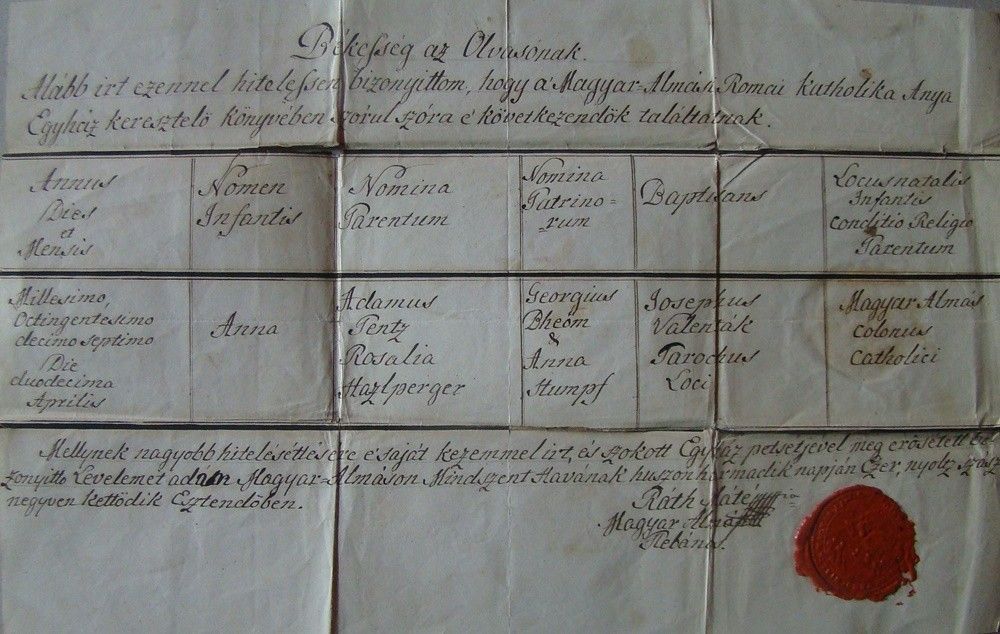 Békesség az Olvasónak.
Alább irt ezennel hitelessen bizonyittom, hogy a' Magyar-Almás Romai Kutholika Anya
Egyház keresztelö könyvében szórul szóra e' következendök találtatnak.
Annus
Dies
et
Mensis
Nomen
Infantis
Nomina
Parentum
Nomina
Patrino=
=rum
Baptisans
Locus natalis
Infantis
Conditio Religio
Parentum
Millesimo,
Octingentesimo
decimo septimo
Die
duodecima
Aprilis
Anna
Adamus
Pentz
Rosalia
Hazlperger
Georgius
Bheom
&
Anna
Stumpf
Josephus
Valenták
Parochus
Loci
Magyar Almás
Colonus
Catholici
Mellynek nagyobb hitelésétlésére e' saját kezemmel irt, és szokott Egyház petsétjével meg erösetett bi=
zonyitto Levelemet adám Magyar-Almáson Mindszent Havának huszon harmadik napján Ezer, nyoltz száz
negyven kettödik Esztendöben.
Rath Máté
Magyar Almási
Plebános.